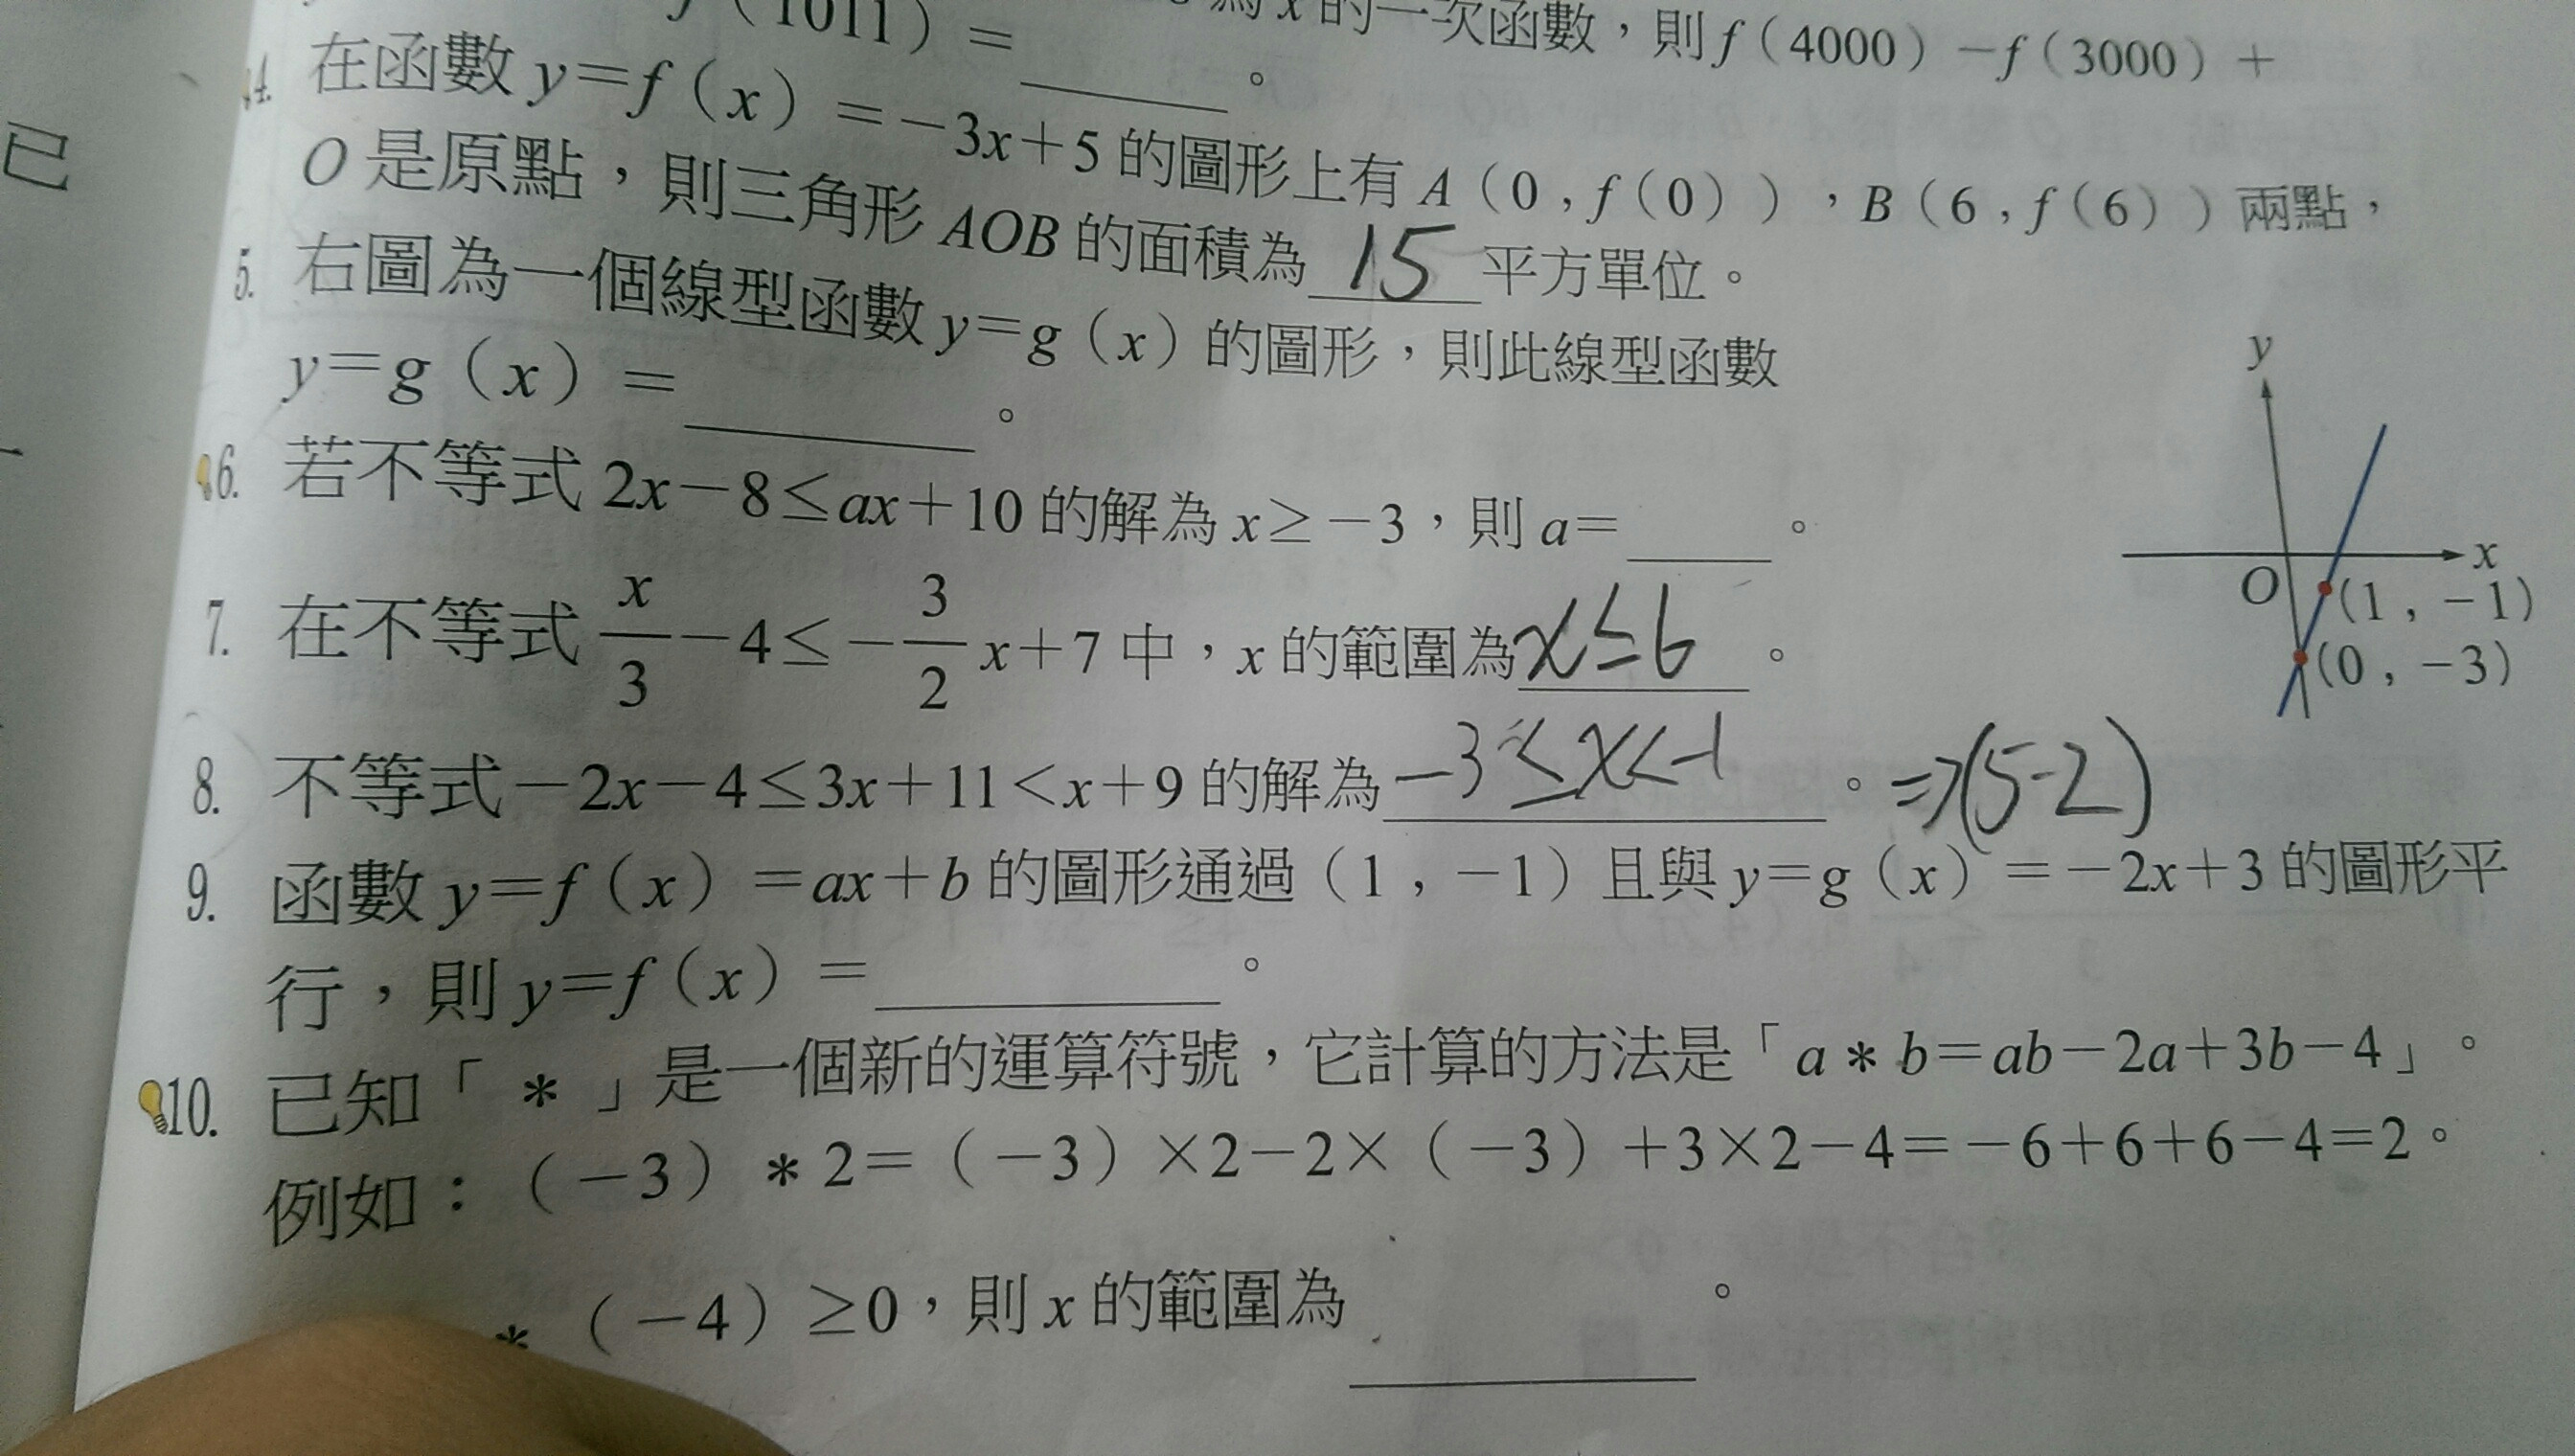 f(1011)=＿＿＿。
為x的一次函數，則f(4000)-f(3000)+
4. 在函數y=f(x)=-3x+5的圖形上有A(0,f(0))，B(6,f(6))兩點，
O是原點，則三角形AOB的面積為 15 平方單位。
5. 右圖為一個線型函數y=g(x)的圖形，則此線型函數
y=g(x)=＿＿＿。
6. 若不等式2x-8≤ax+10的解為x≥-3，則a=＿＿＿。
7. 在不等式x/3-4≤-3/2x+7中，x的範圍為 x≤6 。
8. 不等式-2x-4≤3x+11<x+9的解為 -3≤x<-1 。=>(5-2)
9. 函數y=f(x)=ax+b的圖形通過(1,-1)且與y=g(x)=-2x+3的圖形平
行，則y=f(x)=＿＿＿。
10. 已知「*」是一個新的運算符號，它計算的方法是「a*b=ab-2a+3b-4」。
例如：(-3)*2=(-3)×2-2×(-3)+3×2-4=-6+6+6-4=2。
*(-4)≥0，則x的範圍為＿＿＿。
y
x
O
(1,-1)
(0,-3)
已